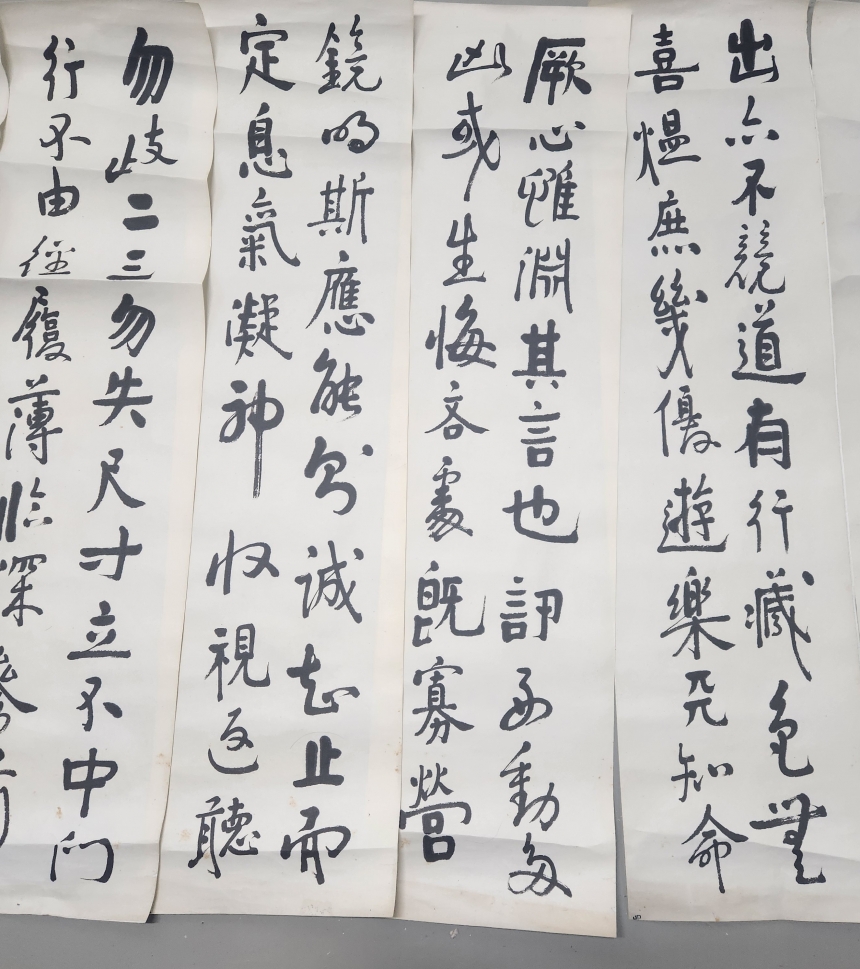 出亦不競道有行藏色無
喜愠庶幾優遊樂天知命
厥心惟淵其言也訒動多
凶或生悔吝處既寡營
鏡明斯應能誠知止而
定息氣凝神收視返聽
勿歧二三勿失尺寸立不中
門行不由徑履薄臨深